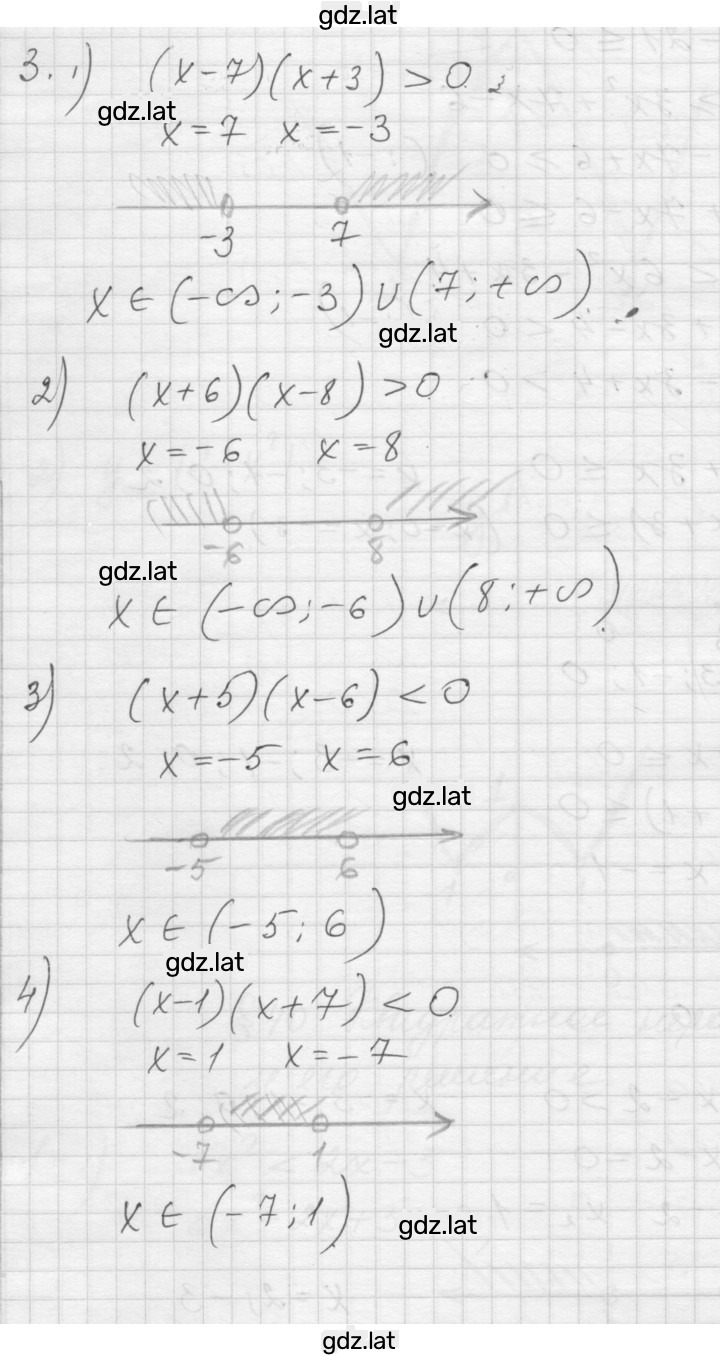 gdz.lat
3. 1) (x-7)(x+3) > 0
gdz.lat
x = 7 x = -3
-3 7
x ∈ (-∞; -3) ∪ (7; +∞).
gdz.lat
2) (x+6)(x-8) > 0
x = -6 x = 8
-6 8
gdz.lat
x ∈ (-∞; -6) ∪ (8; +∞).
3) (x+5)(x-6) < 0
x = -5 x = 6
gdz.lat
-5 6
x ∈ (-5; 6)
gdz.lat
4) (x-1)(x+7) < 0
x = 1 x = -7
-7 1
x ∈ (-7; 1)
gdz.lat
gdz.lat